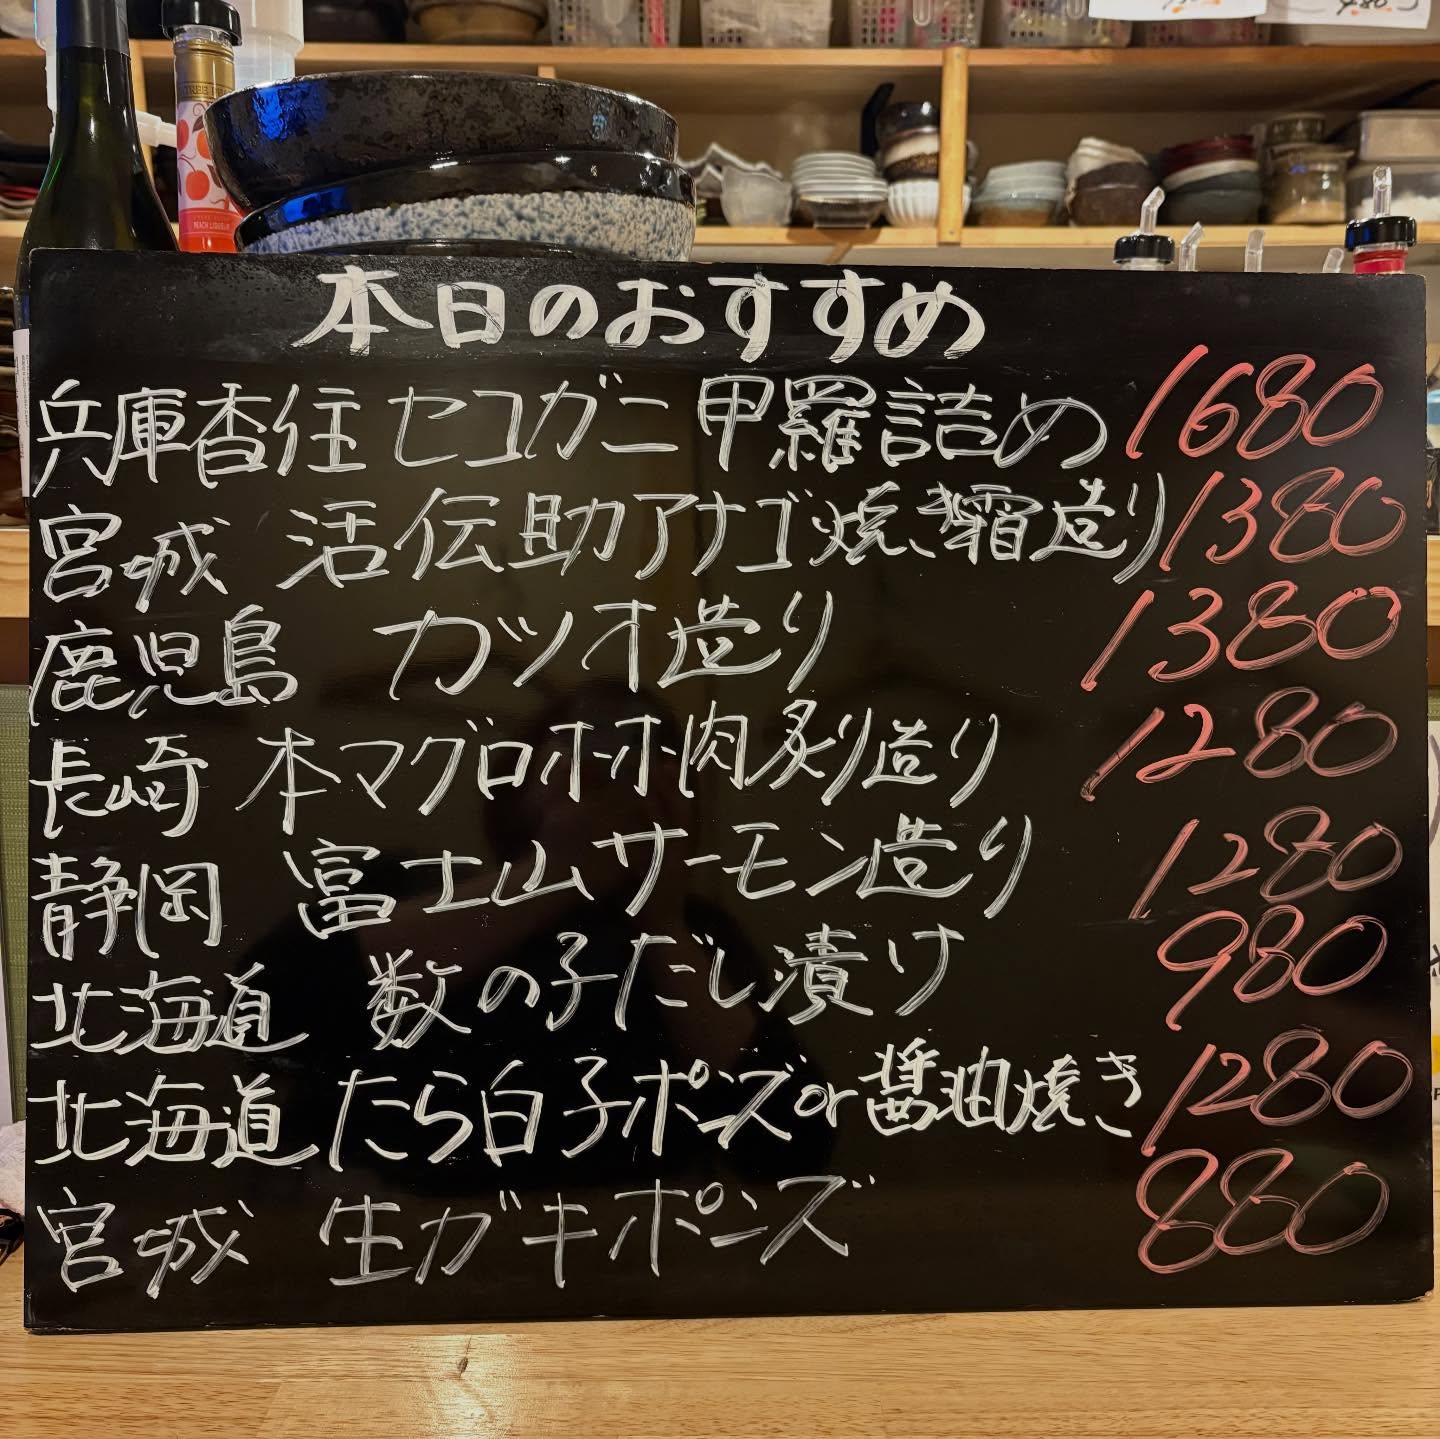 本日のおすすめ
兵庫香住 セコガニ 甲羅詰め 1680
宮城 活伝助アナゴ焼き霜造り 1380
鹿児島 カツオ造り 1380
長崎 本マグロホホ肉炙り造り 1280
静岡 富士山サーモン造り 1280
北海道 数の子だし漬け 980
北海道 たら白子ポンズor醤油焼き 1280
宮城 生ガキポンズ 880
PEACH LIQUEUR